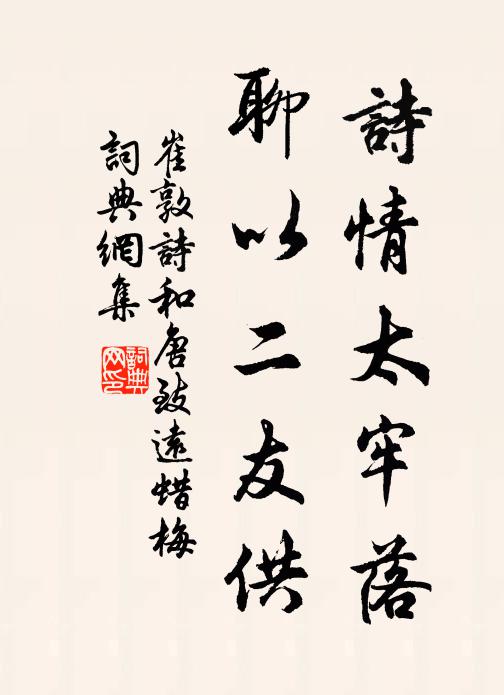 詩情太牢落
聊以二友供
崔敦詩和唐致遠蜡梅
詞典網集
詞典
网印